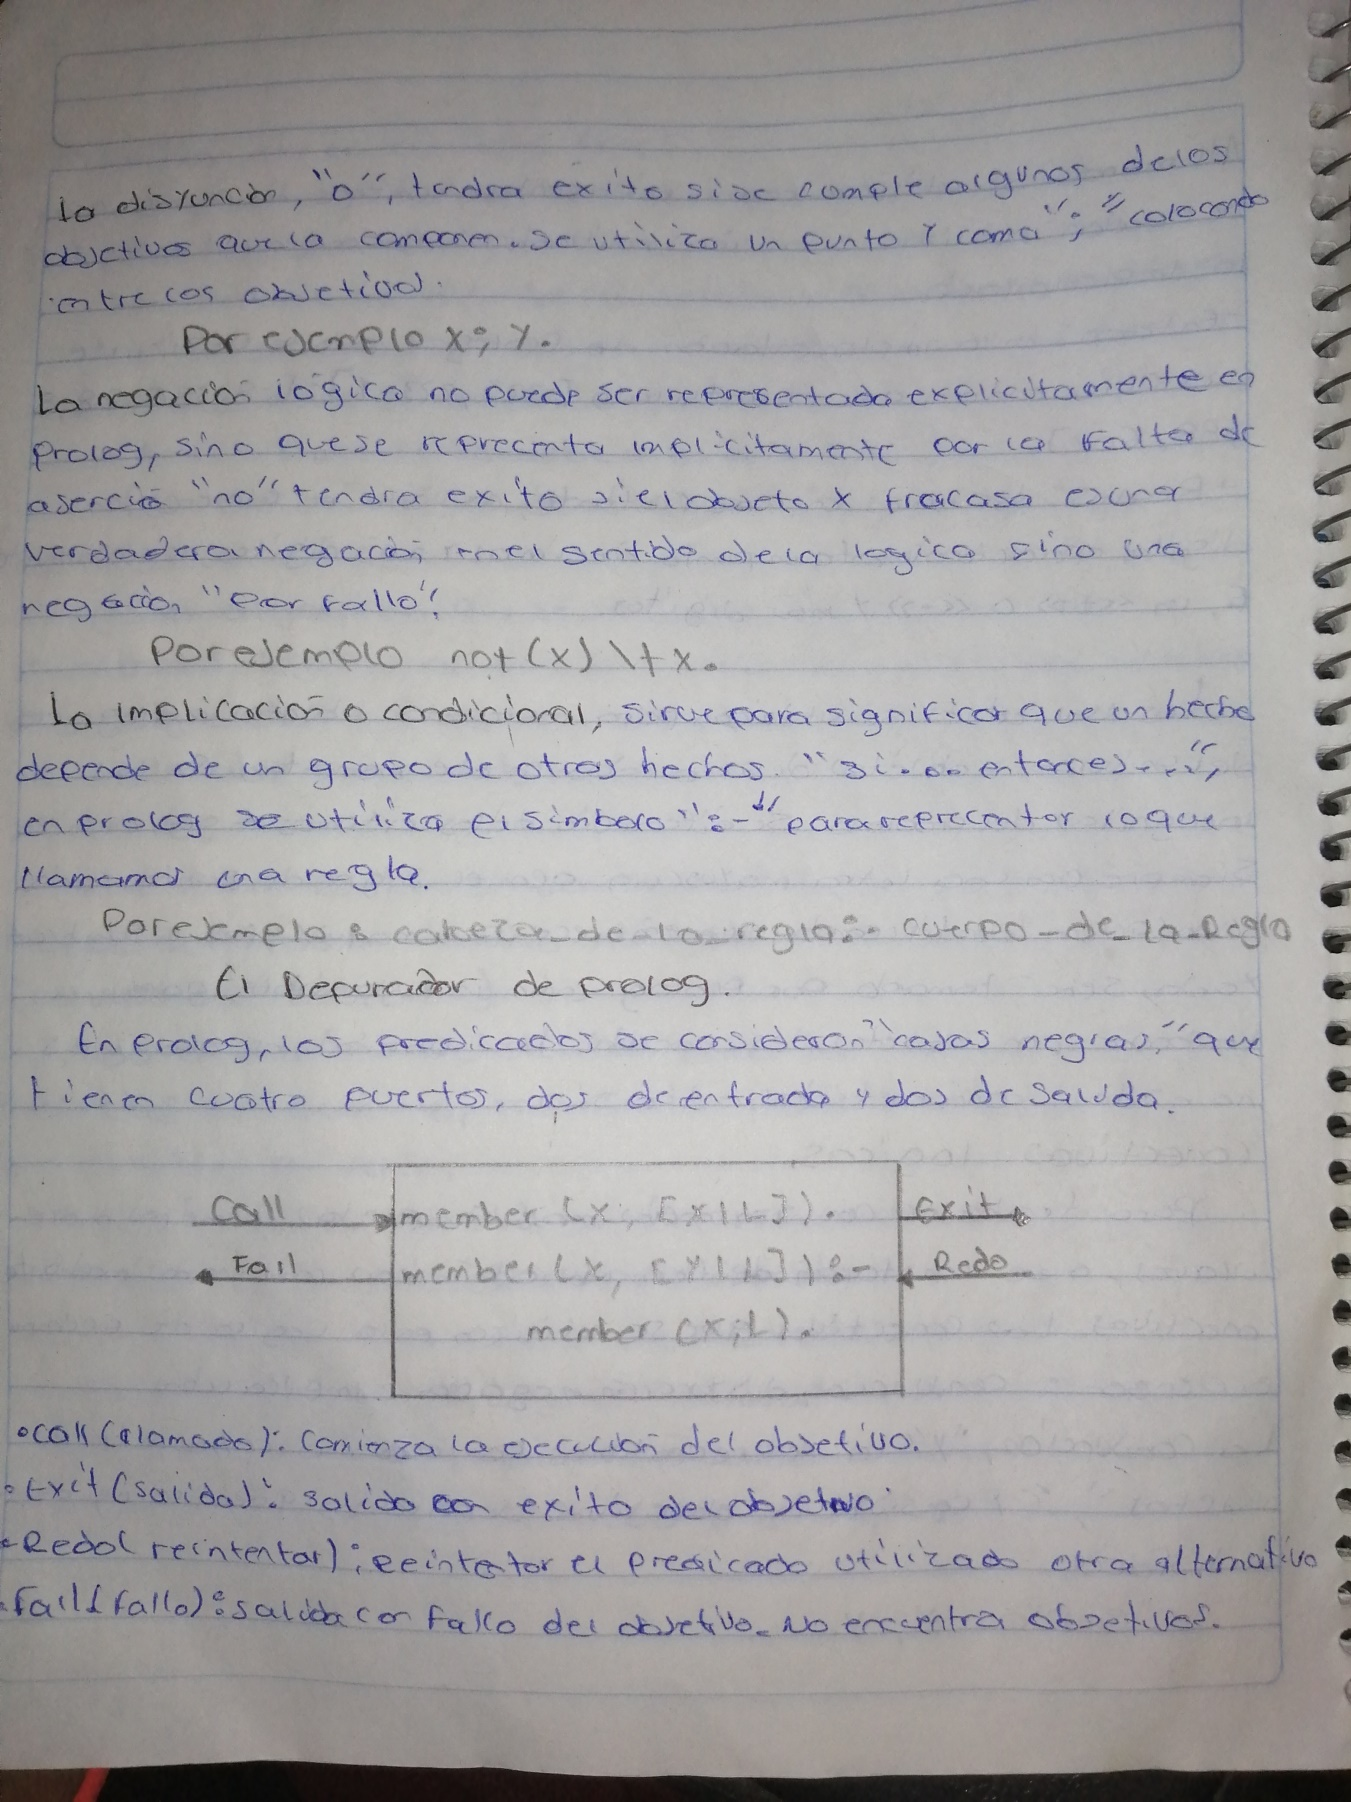 La disyunción, "o", tendra exito sise cumple algunos delos
objetivos que la componen. se utiliza un punto y coma "; " colocando
entre los objetivos.
Por ejemplo X; Y.
La negación lógica no puede ser representada explicitamente en
prolog, sino que se representa implicitamente por la Falta de
aserció "no" tendra exito si el objeto X fracasa es una
verdadera negación, en el sentido de la logica sino una
negación "por fallo".
Por ejemplo not (x) \+ x.
La implicación o condicional, sirve para significar que un hecho
depende de un grupo de otros hechos. "si... entonces...",
en prolog se utiliza el simbolo ":-" para reprecentar lo que
llamamos una regla.
Por ejemplo: cabeza_de_la_regla:- cuerpo_de_la_Regla
El Depurador de prolog.
En prolog, los predicados se consideran "cajas negras," que
tienen cuatro puertos, dos de entrada y dos de salida.
Call member (X, [X|L]). Exit
Fail member (X, [Y|L]) :- Redo
member (X,L).
•Call (llamada): Comienza la ejecución del objetivo.
• Exit (salida): salida con exito del objetivo.
• Redo( reintentar): Reintentar el predicado utilizado otra alternativa
• Fail( fallo): salida con fallo del objetivo. No encuentra objetivos.